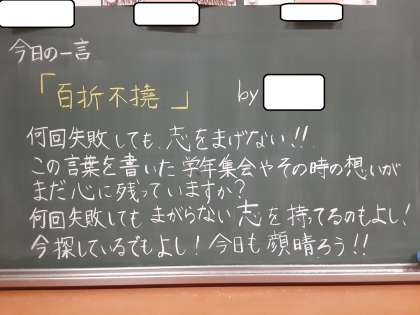 今日の一言
「百折不撓」 by
何回失敗しても、志をまげない!!
この言葉を書いた学年集会やその時の想いが
まだ心に残っていますか?
何回失敗してもまがらない志を持ってるのもよし!
今探しているでもよし!今日も顔晴ろう!!